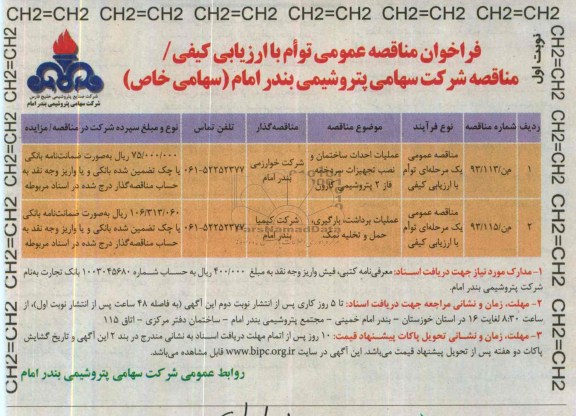 CH2=CH2 CH2=CH2 CH2=CH2 CH2=CH2 CH2=CH2 CH2=CH2 CH2=CH2
نوبت اول
فراخوان مناقصه عمومی توأم با ارزیابی کیفی/
مناقصه شرکت سهامی پتروشیمی بندر امام (سهامی خاص)
شرکت صنایع پتروشیمی خلیج فارس
شرکت سهامی پتروشیمی بندر امام
ردیف شماره مناقصه نوع فرآیند موضوع مناقصه مناقصه‌گذار تلفن تماس نوع و مبلغ سپرده شرکت در مناقصه/مزایده
۱ من/۹۳/۱۱۳ مناقصه عمومی یک مرحله‌ای توأم با ارزیابی کیفی عملیات احداث ساختمان و نصب تجهیزات سردخانه فاز ۲ پتروشیمی کارون شرکت خوارزمی بندر امام ۰۶۱-۵۲۲۵۲۳۷۷ ۷۵/۰۰۰/۰۰۰ ریال به‌صورت ضمانت‌نامه بانکی یا چک تضمین شده بانکی و یا واریز وجه نقد به حساب مناقصه‌گذار درج شده در اسناد مربوطه
۲ من/۹۳/۱۱۵ مناقصه عمومی یک مرحله‌ای توأم با ارزیابی کیفی عملیات برداشت، بارگیری، حمل و تخلیه نمک شرکت کیمیا بندر امام ۰۶۱-۵۲۲۵۲۳۷۷ ۱۰۶/۳۱۳/۰۶۰ ریال به‌صورت ضمانت‌نامه بانکی یا چک تضمین شده بانکی و یا واریز وجه نقد به حساب مناقصه‌گذار درج شده در اسناد مربوطه
۱- مدارک مورد نیاز جهت دریافت اسناد: معرفی‌نامه کتبی، فیش واریز وجه نقد به مبلغ ۴۰۰/۰۰۰ ریال به حساب شماره ۱۰۰۳۰۴۵۶۸۰ بانک تجارت به‌نام
شرکت پتروشیمی بندر امام.
۲- مهلت، زمان و نشانی مراجعه جهت دریافت اسناد: تا ۵ روز کاری پس از انتشار نوبت دوم این آگهی (به فاصله ۴۸ ساعت پس از انتشار نوبت اول)، از
ساعت ۸:۳۰ لغایت ۱۶ در استان خوزستان - بندر امام خمینی - مجتمع پتروشیمی بندر امام - ساختمان دفتر مرکزی - اتاق ۱۱۵
۳- مهلت، زمان و نشانی تحویل پاکات پیشنهاد قیمت: ۱۰ روز پس از اتمام مهلت دریافت اسناد به نشانی مندرج در بند ۲ این آگهی و تاریخ گشایش
پاکات دو هفته پس از تحویل پیشنهاد قیمت می‌باشد. این آگهی در سایت www.bipc.org.ir قابل مشاهده می‌باشد.
روابط عمومی شرکت سهامی پتروشیمی بندر امام